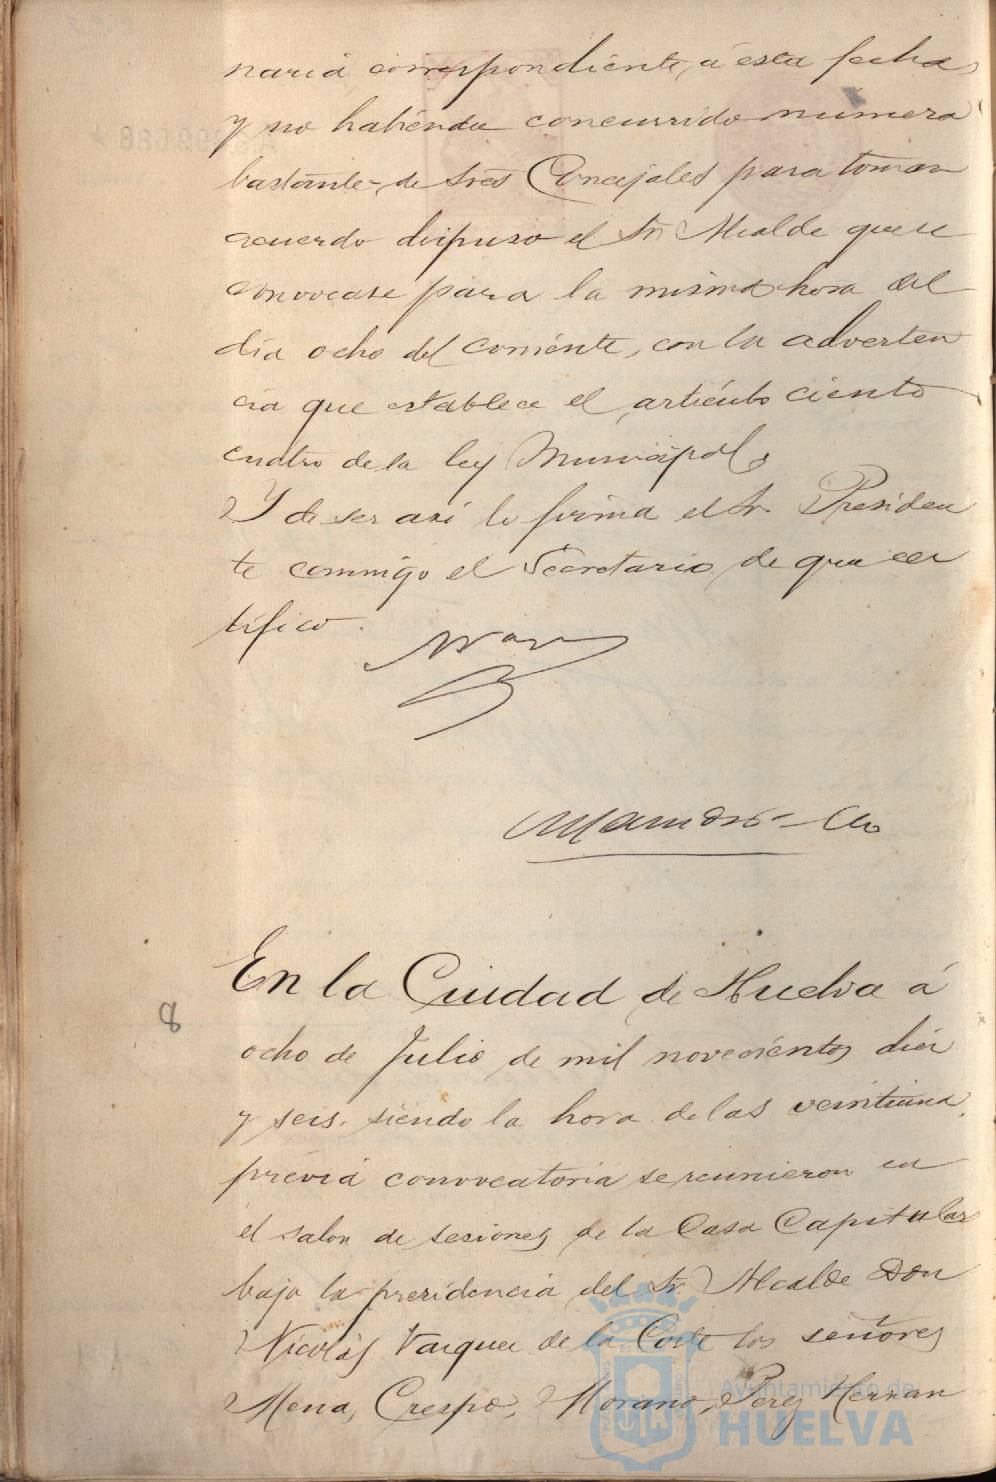 naria correspondiente, á esta fecha,
y no habiendo concurrido numero
bastante de Sres Concejales para tomar
acuerdo dispuso el Sr Alcalde que se
convocase para la misma hora del
dia ocho del corriente, con la adverten
cia que establece el articulo ciento
cuatro de la ley Municipal.
Y de ser asi lo firma el Sr. Presiden
te conmigo el Secretario de que cer
tifico.
8
En la Ciudad de Huelva á
ocho de Julio de mil novecientos diez
y seis, siendo la hora de las veintiuna,
prévia convocatoria se reunieron en
el salon de sesiones de la Casa Capitular
bajo la presidencia del Sr. Alcalde Don
Nicolás Vazquez de la Corte los señores
Mena, Crespo, Morano, Perez Hernan
Ayuntamiento de
HUELVA